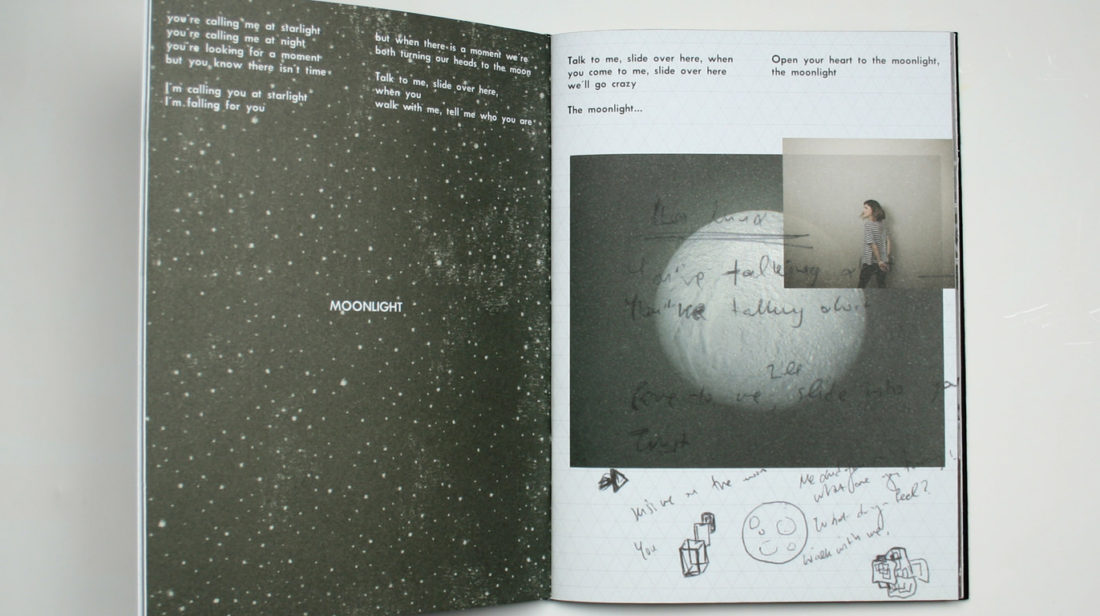 you're calling me at starlight
you're calling me at night
you're looking for a moment
but you know there isn't time
I'm calling you at starlight
I'm falling for you
but when there is a moment we're
both turning our heads to the moon
Talk to me, slide over here,
when you
walk with me, tell me who you are
MOONLIGHT
Talk to me, slide over here, when
you come to me, slide over here
we'll go crazy
The moonlight...
Open your heart to the moonlight,
the moonlight
You've talking
You've talking
to me, slide into you
Trust
on the moon
You
what are you
What do you feel?
Walk with me,